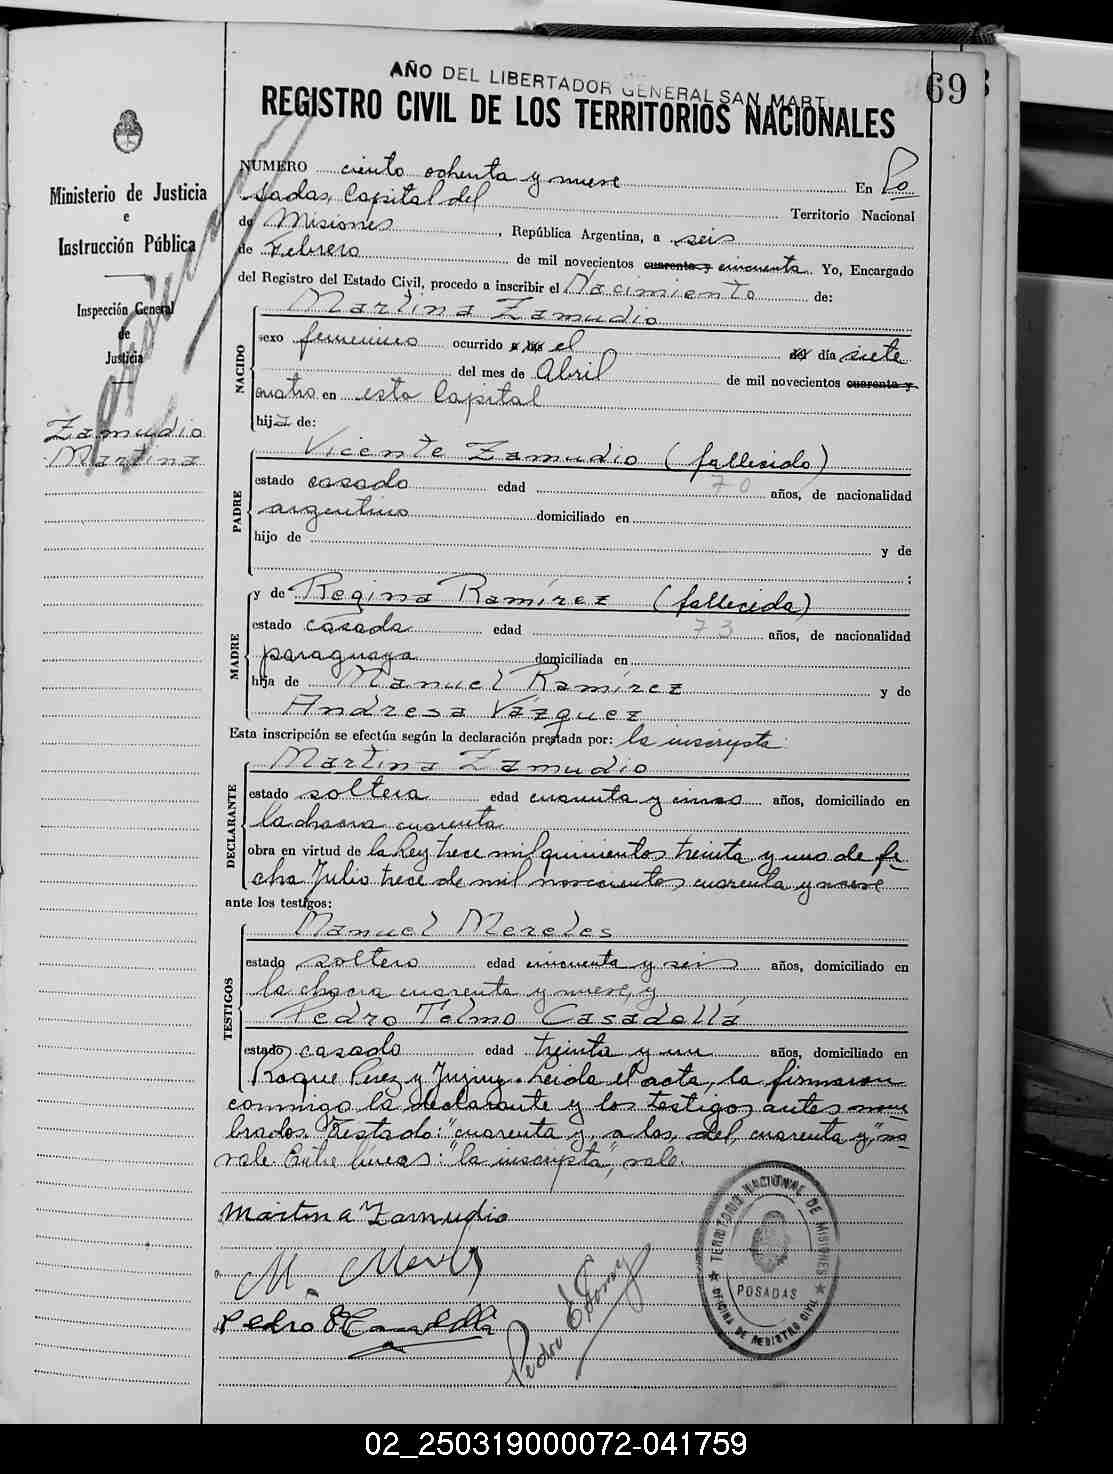 AÑO DEL LIBERTADOR GENERAL SAN MARTI
69
REGISTRO CIVIL DE LOS TERRITORIOS NACIONALES
Ministerio de Justicia
e
Instrucción Pública
Inspección General
de
Justicia
Zamudio
Martina
NUMERO ciento ochenta y nueve En Po
sadas, Capital del Territorio Nacional
de Misiones, República Argentina, a seis
de Febrero de mil novecientos cuarenta y cincuenta. Yo, Encargado
del Registro del Estado Civil, procedo a inscribir el Nacimiento de:
Martina Zamudio
NACIDO
sexo femenino ocurrido a las el del día siete
del mes de Abril de mil novecientos cuarenta y
cuatro en esta Capital
hija de:
Vicente Zamudio (fallecido)
PADRE
estado casado edad 70 años, de nacionalidad
argentino domiciliado en
hijo de y de
;
y de Regina Ramírez (fallecida)
MADRE
estado casada edad 73 años, de nacionalidad
paraguaya domiciliada en
hija de Manuel Ramírez y de
Andresa Vázquez
Esta inscripción se efectúa según la declaración prestada por: la inscripta:
Martina Zamudio
DECLARANTE
estado soltera edad cuarenta y cinco años, domiciliado en
la chacra cuarenta
obra en virtud de la Ley trece mil quinientos treinta y uno de fe-
cha Julio trece de mil novecientos cuarenta y nueve
ante los testigos:
Manuel Mereles
TESTIGOS
estado soltero edad cincuenta y seis años, domiciliado en
la chacra cuarenta y nueve, y
Pedro Telmo Casadellá
estado casado edad treinta y un años, domiciliado en
Roque Perez y Jujuy. Leida el acta, la firmaron
conmigo la declarante y los testigos antes nom-
brados. Testado: "cuarenta y, a las, del, cuarenta y," no
vale. Entre líneas: "la inscripta", vale.
Martina Zamudio
M.
Pedro
Pedro
TERRITORIO NACIONAL DE MISIONES
POSADAS
OFICINA DE REGISTRO CIVIL
02_250319000072-041759